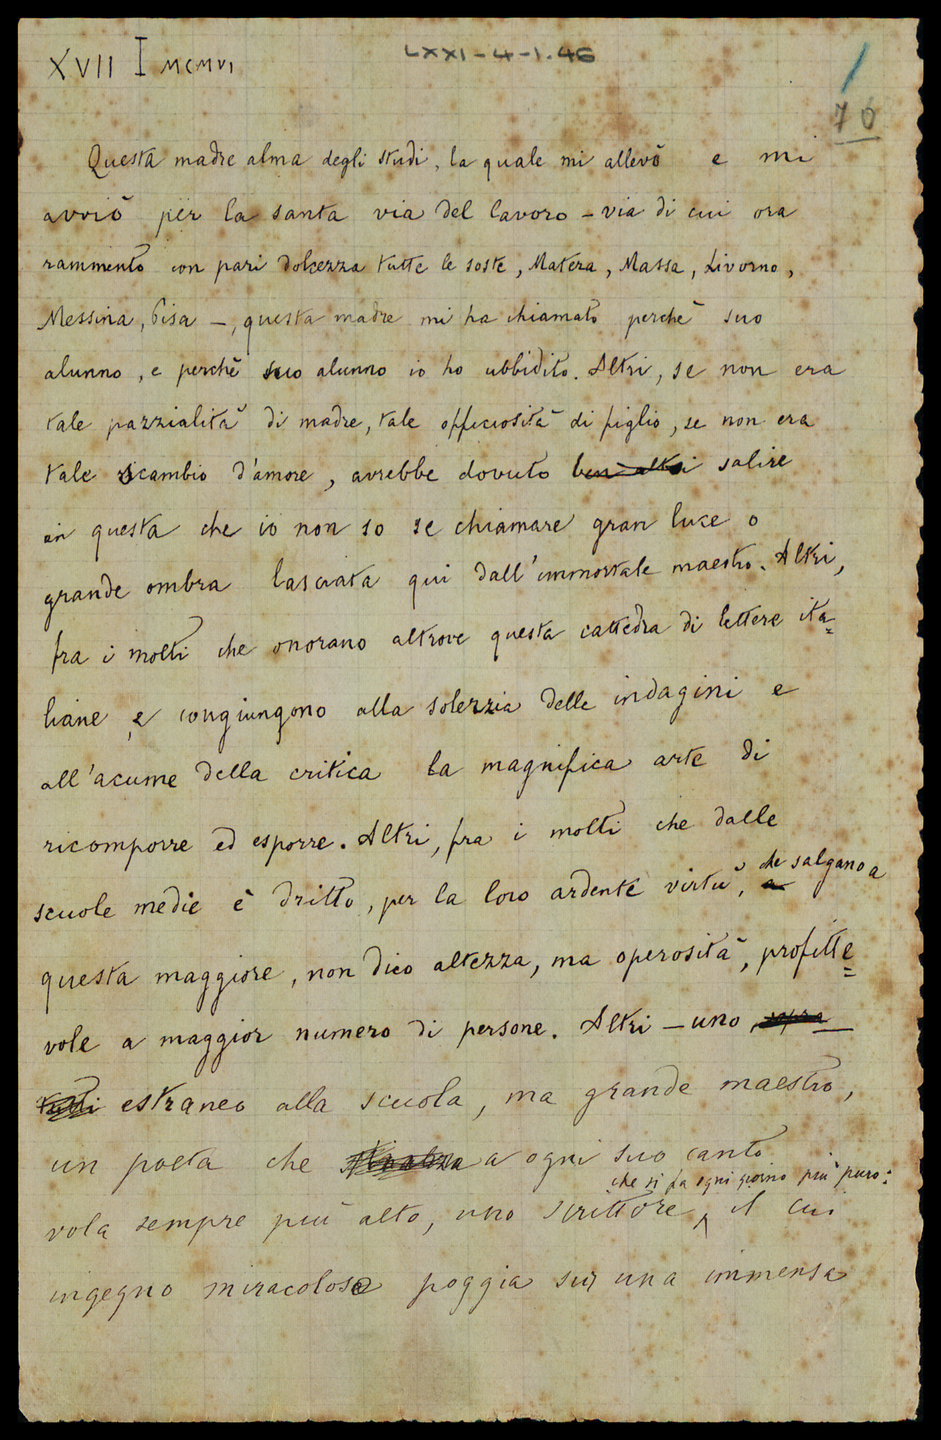 XVII I MCMVI
LXXI-4-1.46
1
70
Questa madre alma degli studi, la quale mi allevò e mi
avviò per la santa via del lavoro - via di cui ora
rammento con pari dolcezza tutte le soste, Matera, Massa, Livorno,
Messina, Pisa -, questa madre mi ha chiamato perchè suo
alunno, e perchè suo alunno io ho ubbidito. Altri, se non era
tale parzialità di madre, tale officiosità di figlio, se non era
tale ricambio d'amore, avrebbe dovuto ben altri salire
in questa che io non so se chiamare gran luce o
grande ombra lasciata qui dall'immortale maestro. Altri,
fra i molti che onorano altrove questa cattedra di lettere ita=
liane, e congiungono alla solerzia delle indagini e
all'acume della critica la magnifica arte di
ricomporre ed esporre. Altri, fra i molti che dalle
scuole medie è dritto, per la loro ardente virtù, che salgano a
questa maggiore, non dico altezza, ma operosità, profitte=
vole a maggior numero di persone. Altri - uno, sopra
tutti estraneo alla scuola, ma grande maestro,
un poeta che a ogni suo canto
vola sempre più alto, uno scrittore, che si fa ogni giorno più puro: il cui
ingegno miracoloso poggia su una immensa